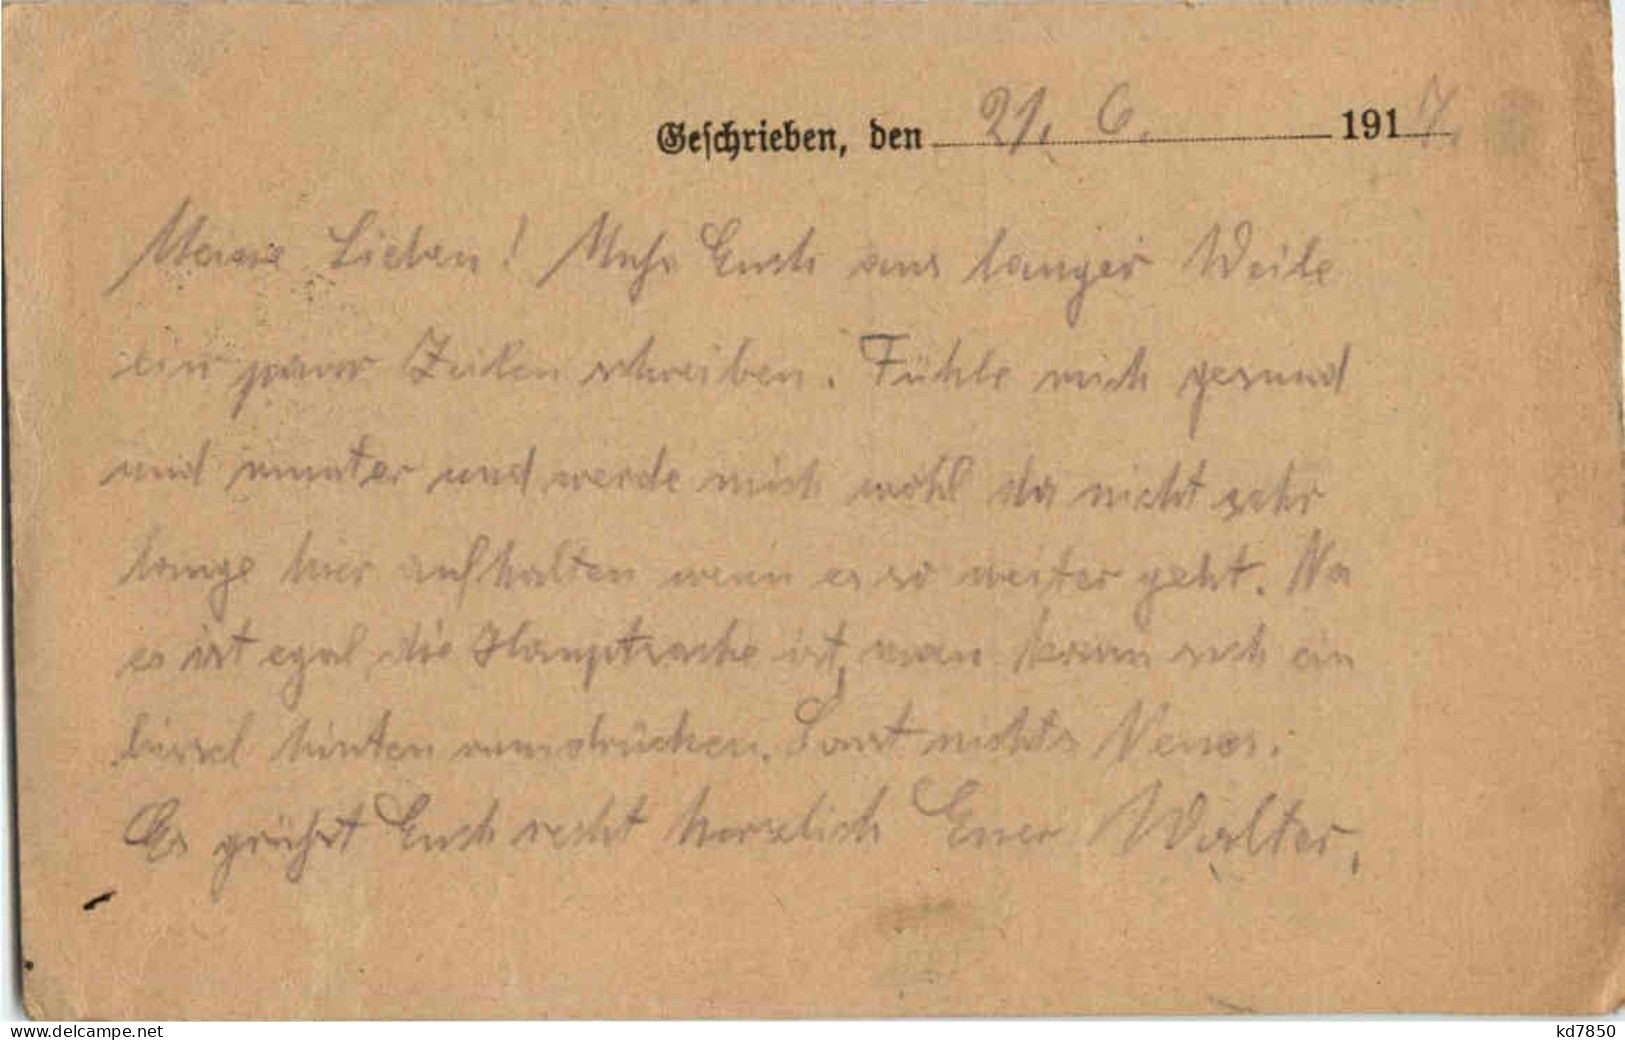 Geschrieben, den 21. 6. 1917.
Meine Lieben! Muß Euch aus langer Weile
ein paar Zeilen schreiben. Fühle mich gesund
und munter und werde mich wohl da nicht sehr
lange hier aufhalten wenn es so weiter geht. Na
es ist egal die Hauptsache ist, man kann sich ein
bissel hinten rumdrücken. Sonst nichts Neues.
Es grüßt Euch recht herzlich Euer Walter.
kd7850
www.delcampe.net